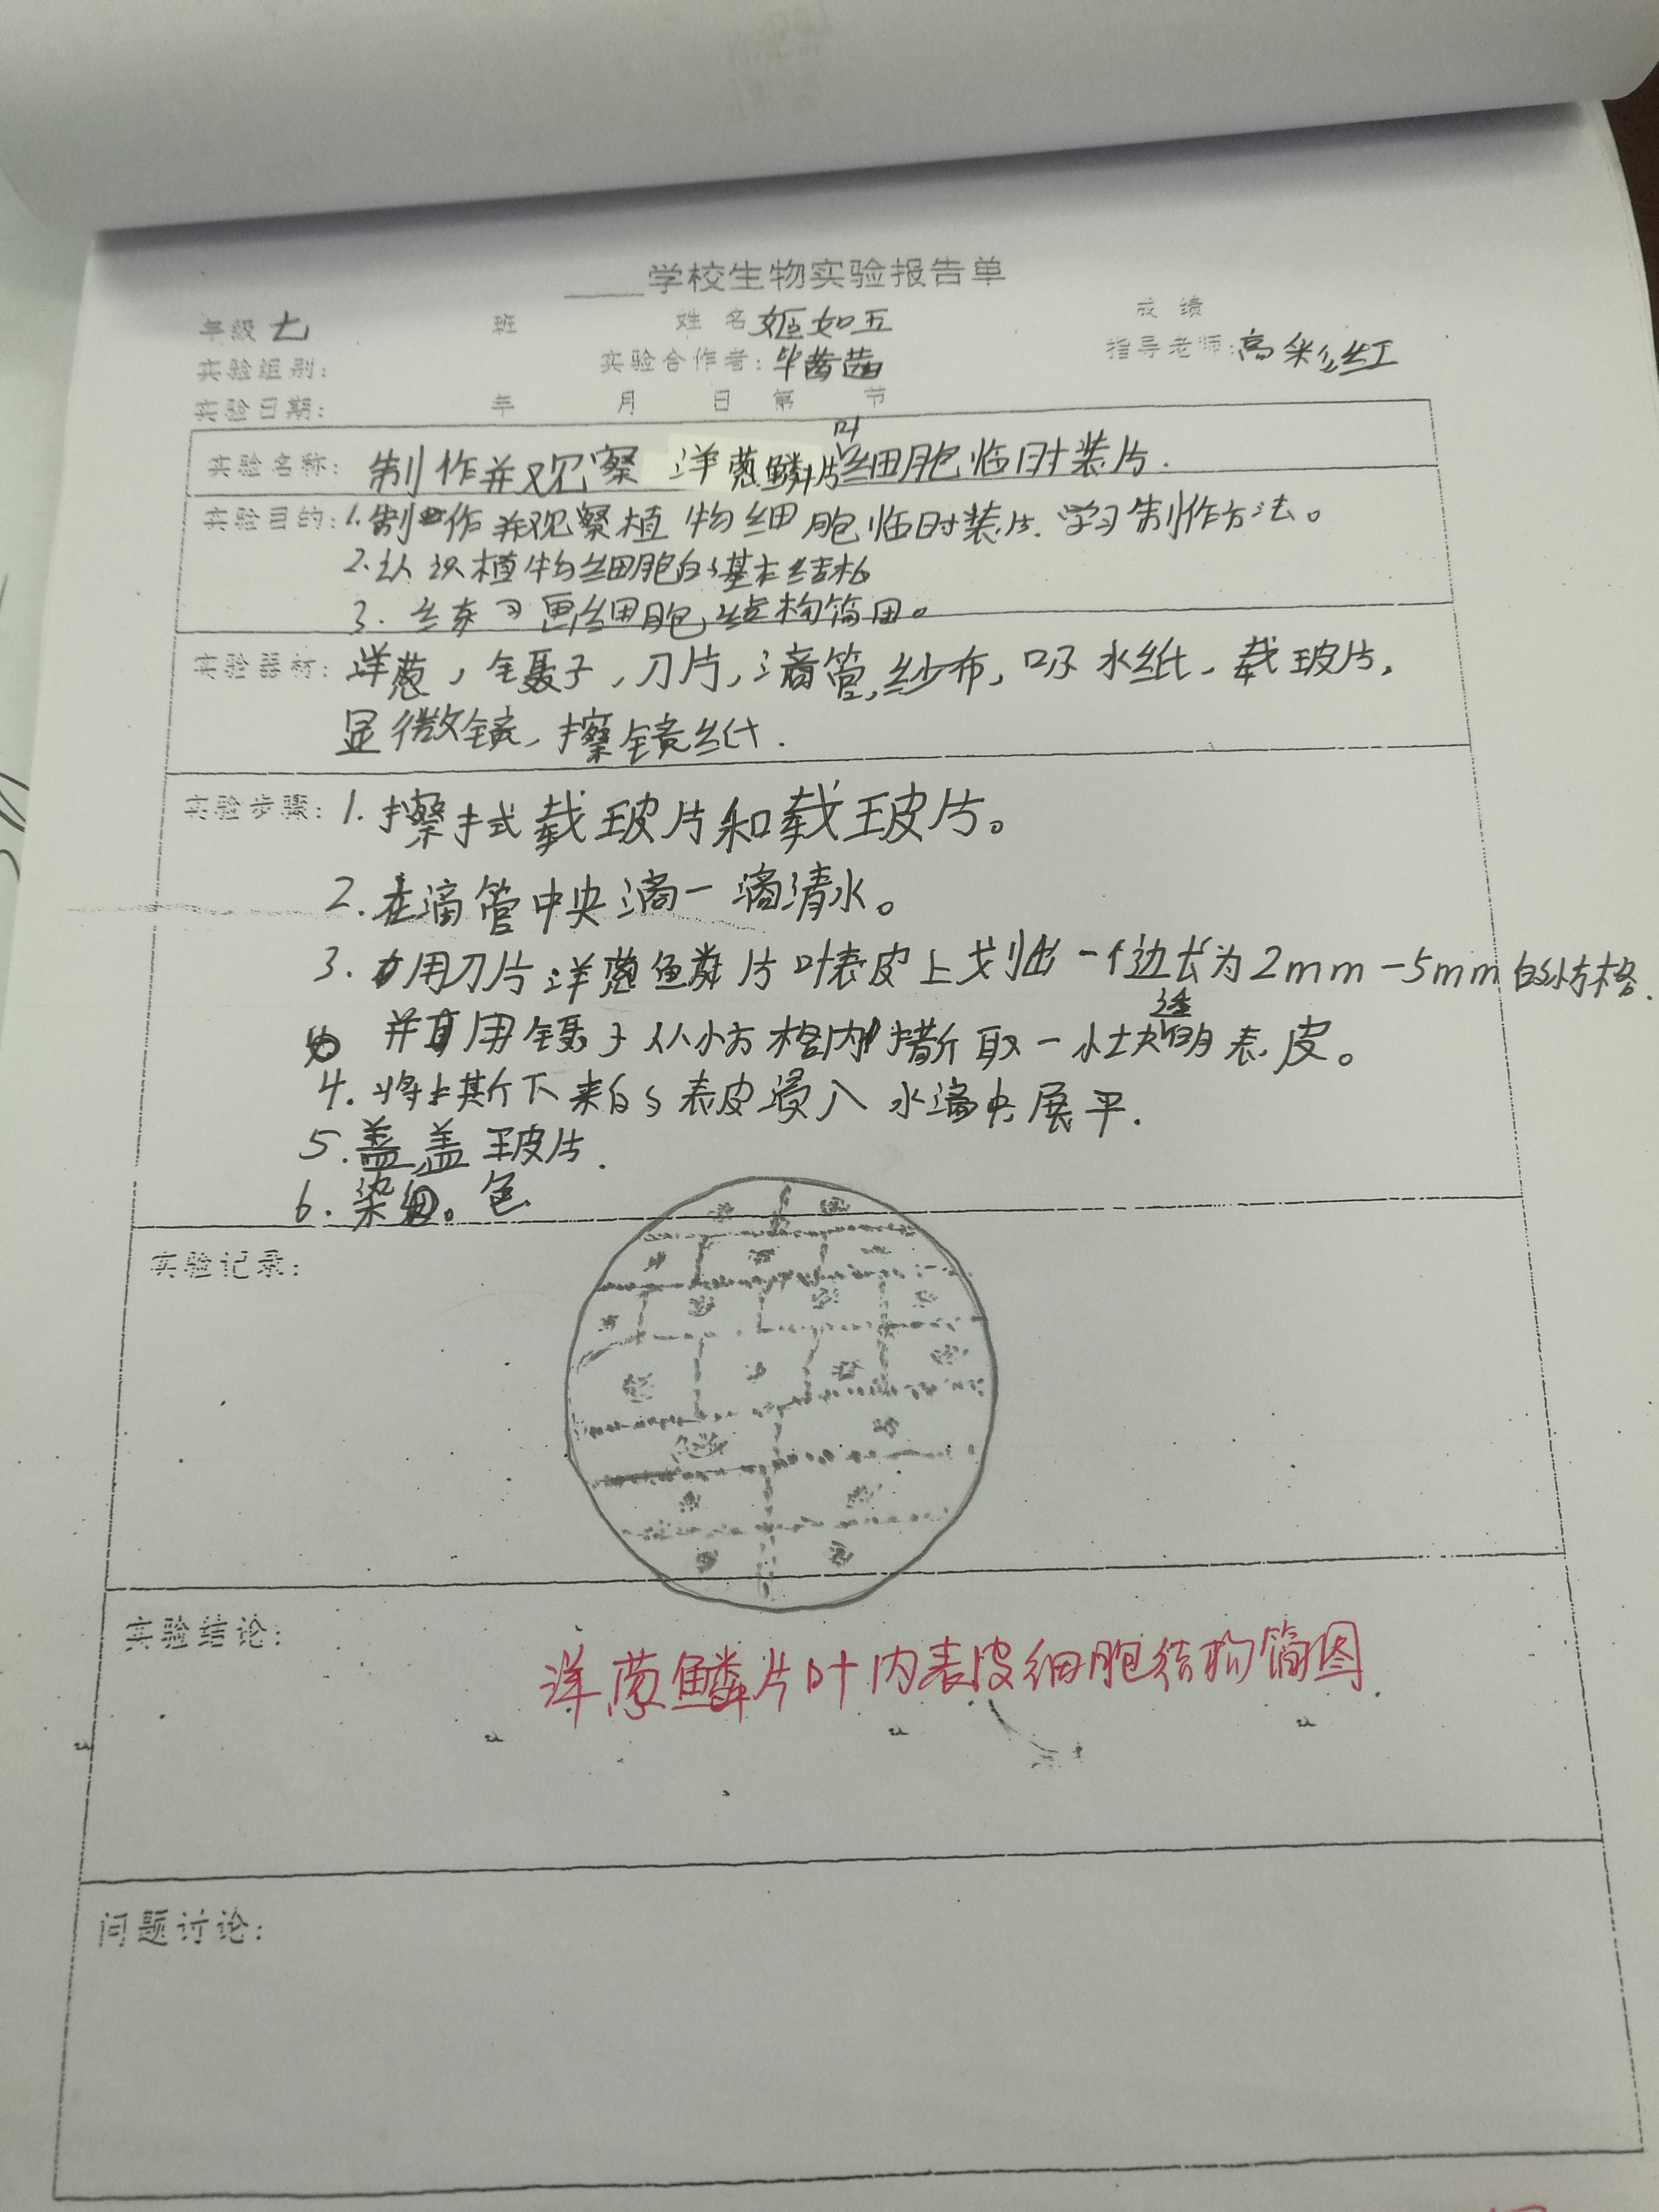 学校生物实验报告单
年级 七 班 姓名 姬如五 成绩
实验组别: 实验合作者: 毕茜茜 指导老师: 高彩红
实验日期: 年 月 日 第 节
实验名称: 制作并观察 洋葱鳞片叶细胞临时装片.
实验目的: 1.制作并观察植物细胞临时装片.学习制作方法。
2.认识植物细胞的基本结构
3. 练习画细胞结构简图。
实验器材: 洋葱,镊子,刀片,滴管,纱布,吸水纸、载玻片,
显微镜,擦镜纸.
实验步骤: 1.擦拭载玻片和载玻片。
2.在滴管中央滴一滴清水。
3.用刀片洋葱鱼鳞片叶表皮上划出一个边长为2mm-5mm的小方格.
并用镊子从小方格内撕取一小块透明表皮。
4.将撕下来的表皮浸入水滴中展平.
5.盖盖玻片.
6.染色
实验记录:
实验结论:
洋葱鳞片叶内表皮细胞结构简图
问题讨论: